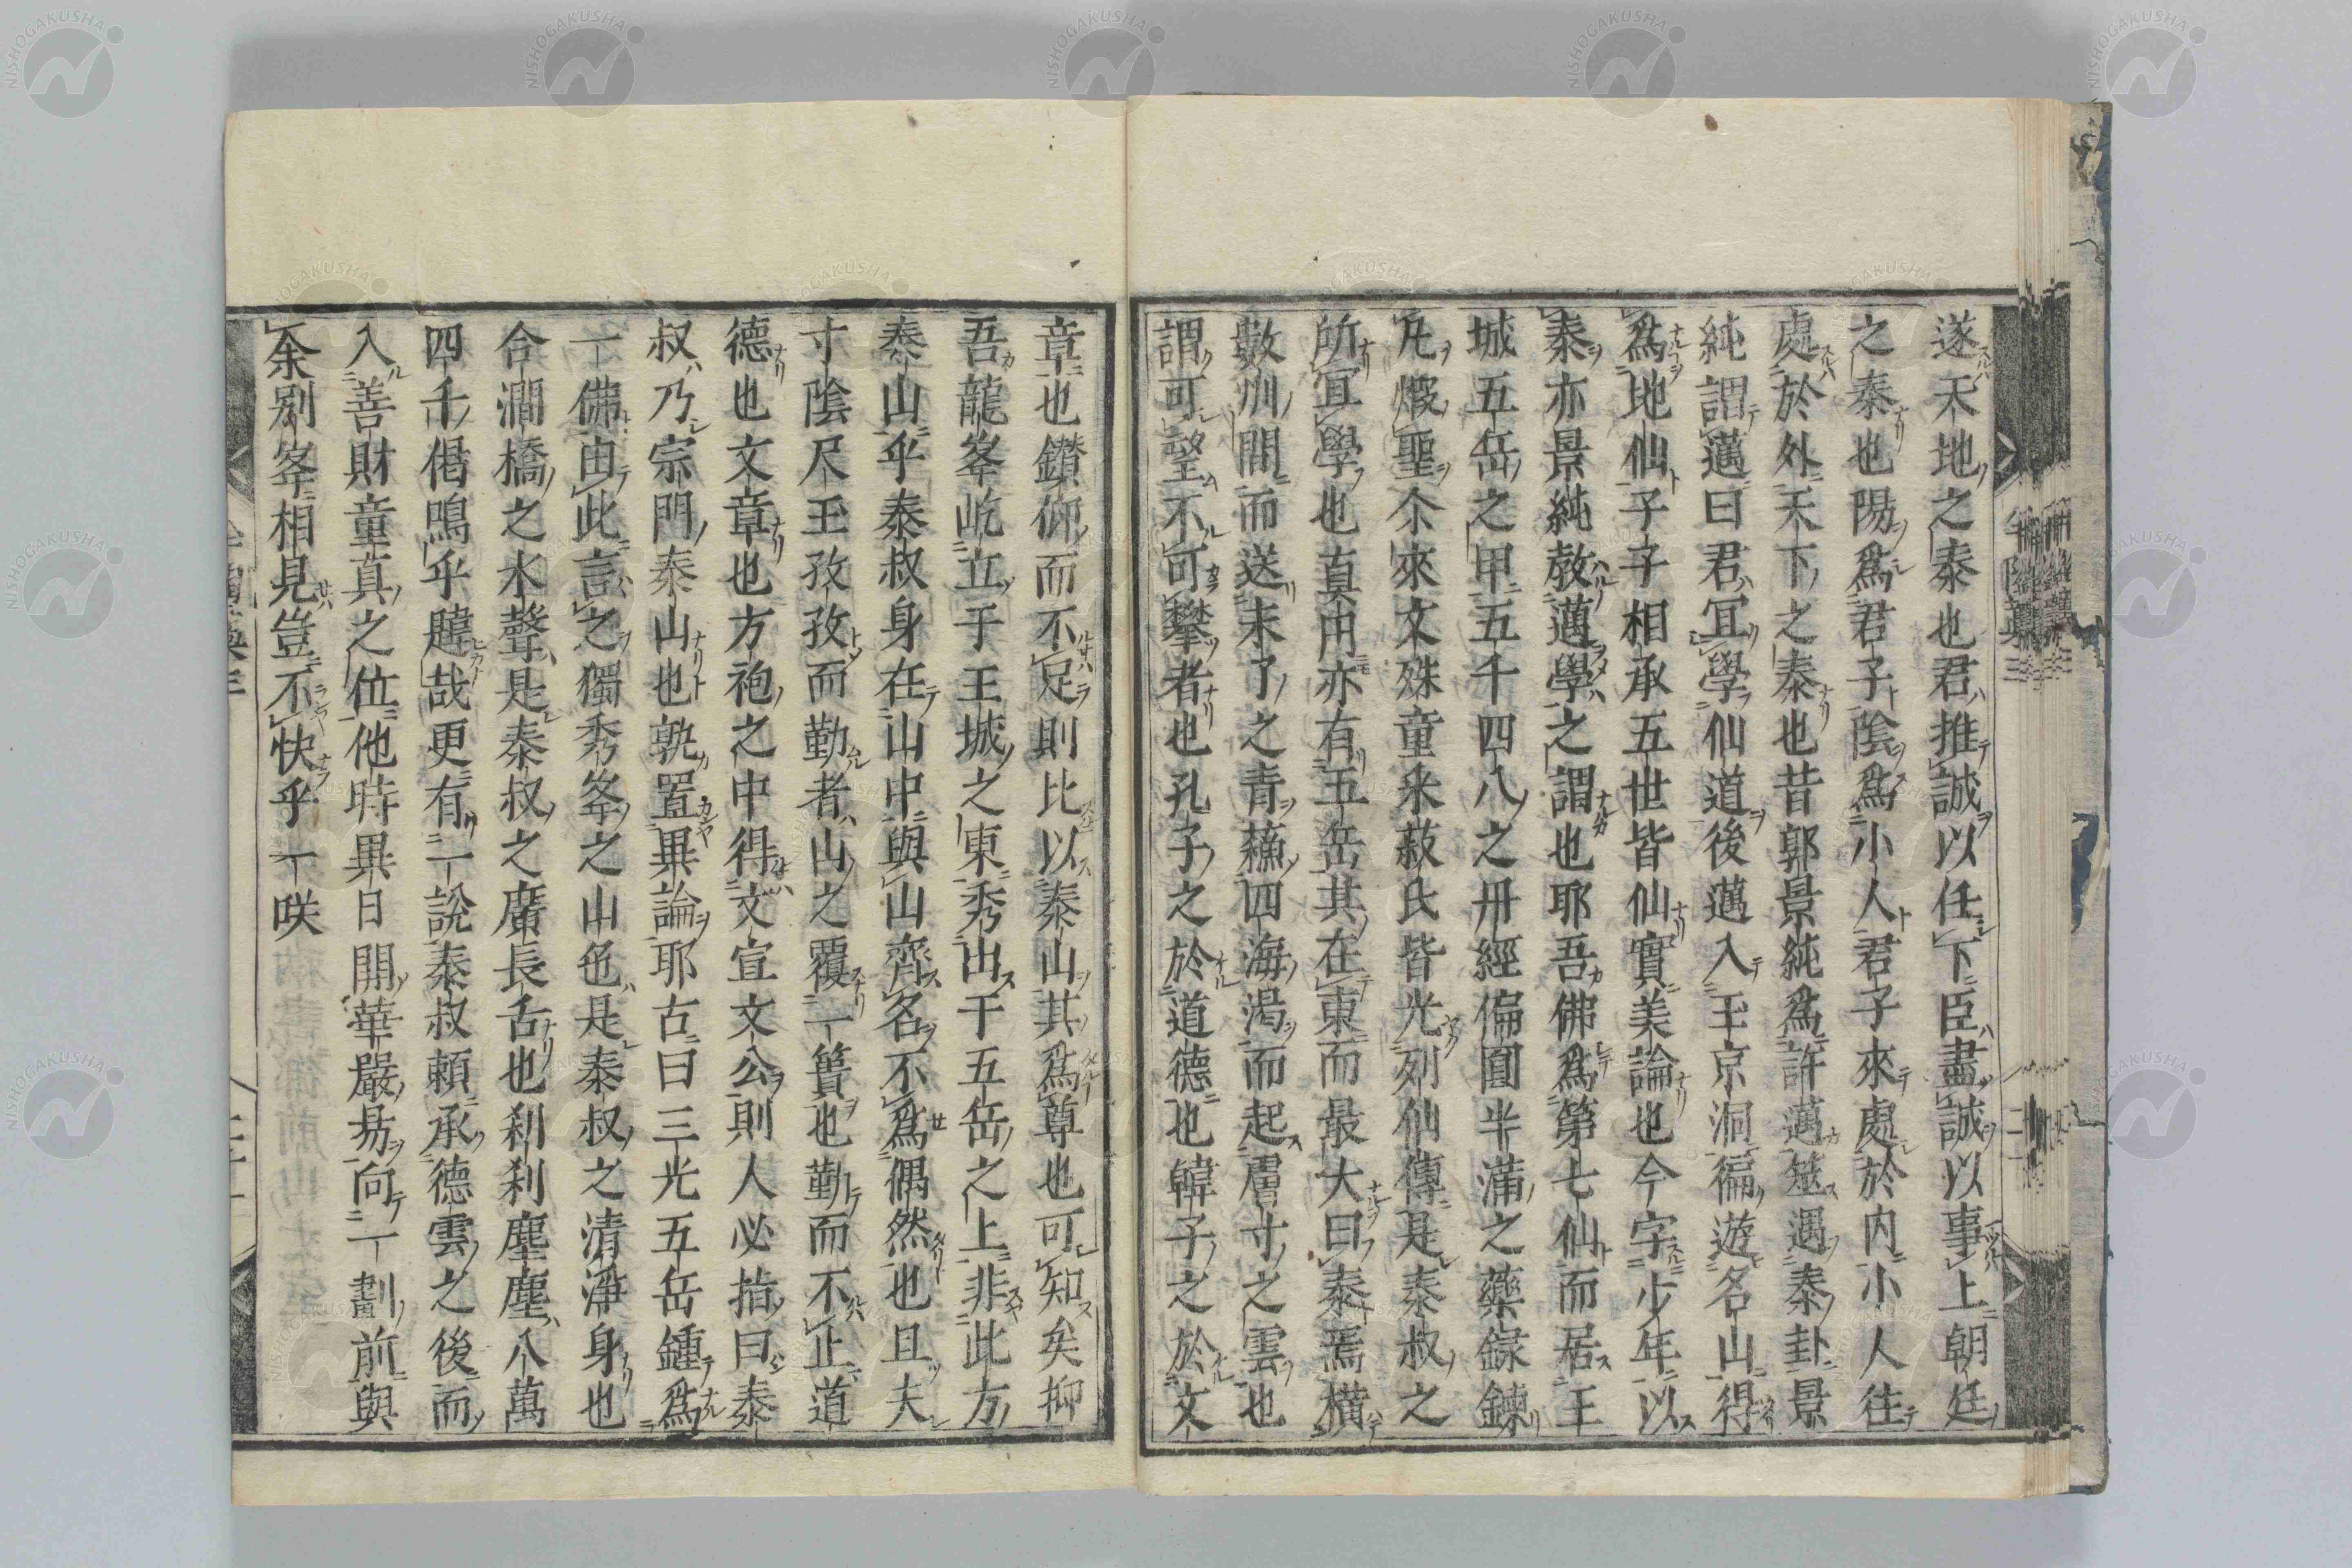 遂天地之泰也君推誠以任下臣盡誠以事上朝廷
之泰也陽爲君子陰爲小人君子來處於内小人往
處於外天下之泰也昔郭景純爲許邁筮遇泰卦景
純謂邁曰君宜學仙道後邁入王京洞徧遊名山得
爲地仙子子相承五世皆仙實美論也今字少年以
泰亦景純敎邁學之謂也耶吾佛爲第七仙而居王
城五岳之甲五千四八之丹經偏圓半滿之藥録鍊
凡煅聖尒來文殊童釆菽氏皆光列仙傳是泰叔之
所宜學也真丹亦有五岳其在東而最大曰泰焉横
數州間而送未了之青蘸四海渇而起膚寸之雲也
謂可望不可攀者也孔子之於道德也韓子之於文
章也鑽仰而不足則比以泰山其爲尊也可知矣抑
吾龍峯屹立于王城之東秀出于五岳之上非此方
泰山乎泰叔身在山中與山齊名不爲偶然也且夫
寸陰尺王孜孜而勤者山之覆一簣也勤而不止道
德也文章也方袍之中得文宣文公則人必指曰泰
叔乃宗門泰山也孰置異論耶古曰三光五岳鍾爲
一佛由此言之獨秀峯之山色是泰叔之清淨身也
合澗橋之水聲是泰叔之廣長舌也刹刹塵塵八萬
四千偈鳴乎韙哉更有一說泰叔頼承德雲之後而
入善財童真之位他時異日開華嚴昜向一劃前與
余別峯相見豈不快乎一咲